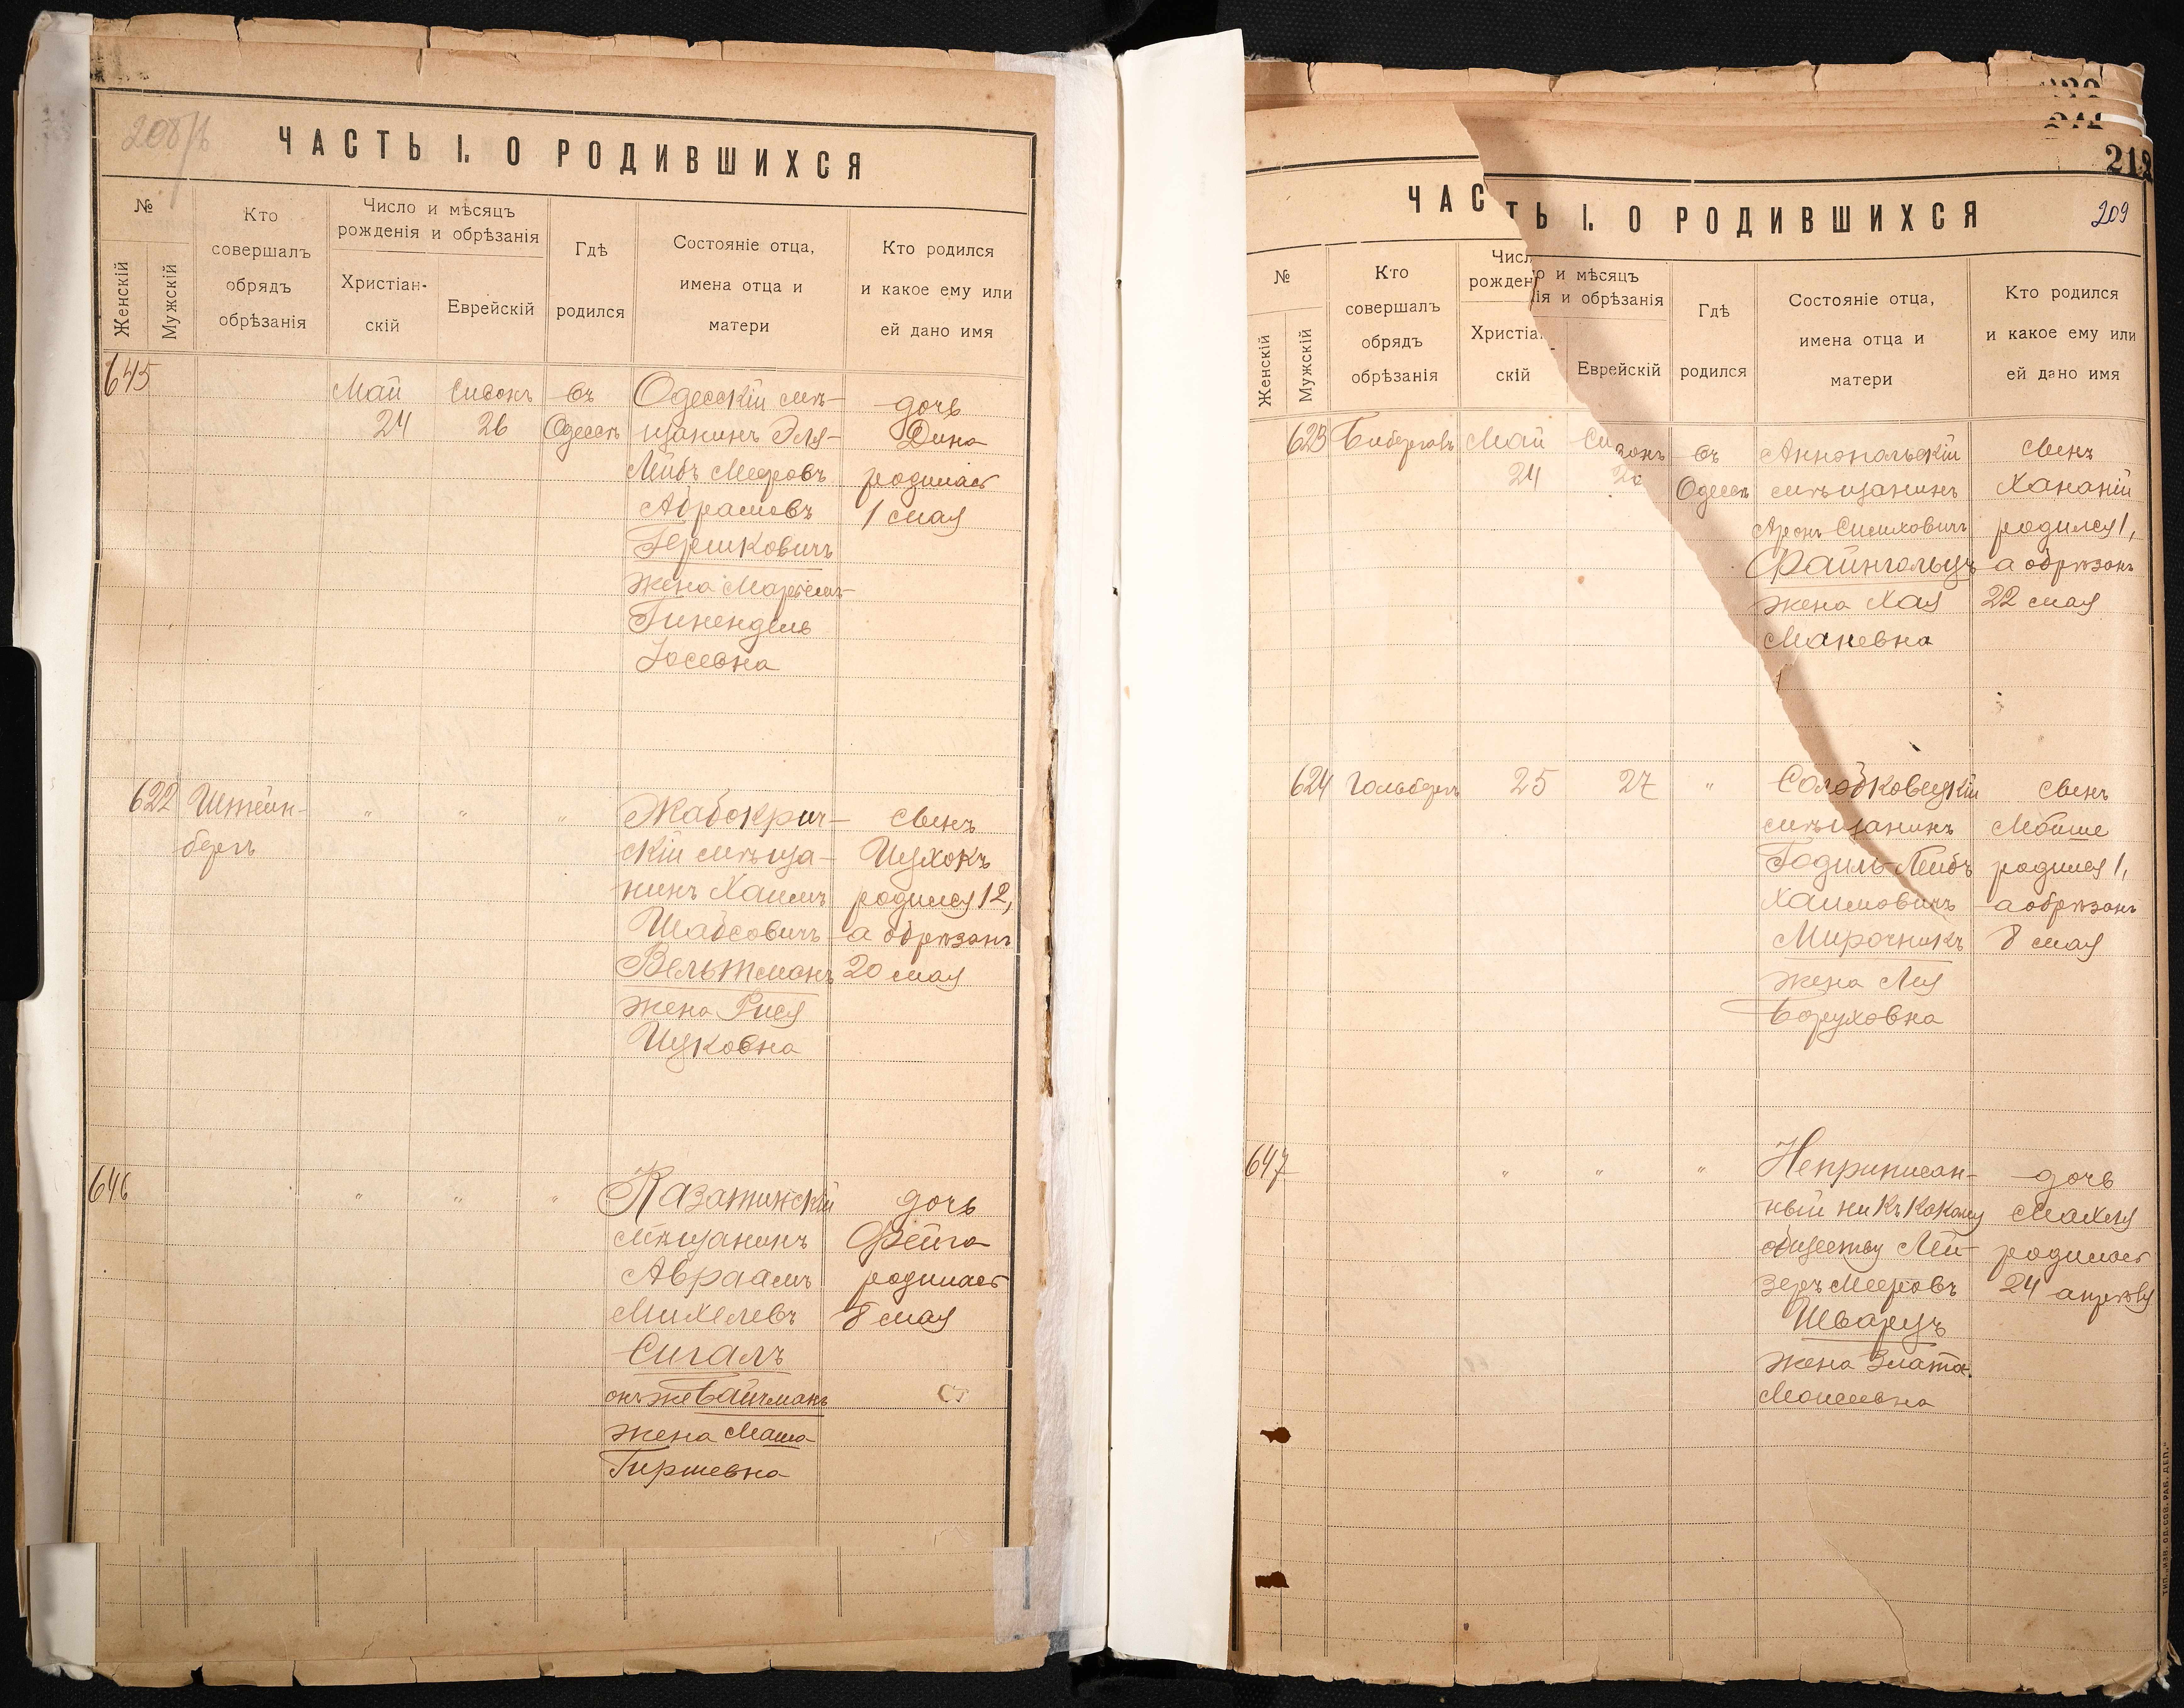 208/б
ЧАСТЬ I. О РОДИВШИХСЯ
№
Женскій
Мужскій
Кто
совершалъ
обрядъ
обрѣзанія
Число и мѣсяцъ
рожденія и обрѣзанія
Христіан-
скій
Еврейскій
Гдѣ
родился
Состояніе отца,
имена отца и
матери
Кто родился
и какое ему или
ей дано имя
645
Май
24
Сивонъ
26
въ
Одессѣ
Одесскій мѣ-
щанинъ Эля-
Лейбъ Мееровъ
Абрамовъ
Гершковичъ
жена
Гинендель
Іосевна
дочь
Дина
родилась
1 мая
622
Штейн-
бергъ
"
"
"
Жабокрич-
скій мѣща-
нинъ Хаимъ
Шабсовичъ
Вельтманъ
жена Рися
Ицковна
сынъ
Ицхокъ
родился 12,
а обрѣзанъ
20 мая
646
"
"
"
Казатинскій
мѣщанинъ
Авраамъ
Михелевъ
Сигалъ
онъ же Вайнманъ
жена Маша
Гиршевна
дочь
Фейга
родилась
8 мая
212
209
ЧАСТЬ I. О РОДИВШИХСЯ
№
Женскій
Мужскій
Кто
совершалъ
обрядъ
обрѣзанія
Число и мѣсяцъ
рожденія и обрѣзанія
Христіан-
скій
Еврейскій
Гдѣ
родился
Состояніе отца,
имена отца и
матери
Кто родился
и какое ему или
ей дано имя
623
Май
24
Сивонъ
26
въ
Одессѣ
Аннопольскій
мѣщанинъ
Аронъ Симховичъ
Файнгольцъ
жена Хая
Маневна
сынъ
Хананій
родился 1,
а обрѣзанъ
22 мая
624
Гольбергъ
25
27
"
Солобковецкій
мѣщанинъ
Годиль-Лейбъ
Хаимовичъ
Мирочникъ
жена Лея
Боруховна
сынъ
Мойше
родился 1,
а обрѣзанъ
8 мая
647
"
"
"
Неприписан-
ный ни къ какому
обществу Лей-
зеръ Мееровъ
Шварцъ
жена Злата
Моисеевна
дочь
Махля
родилась
24 апрѣля
ТИП. „ИЗВ. ОД. СОВ. РАБ. ДЕП."